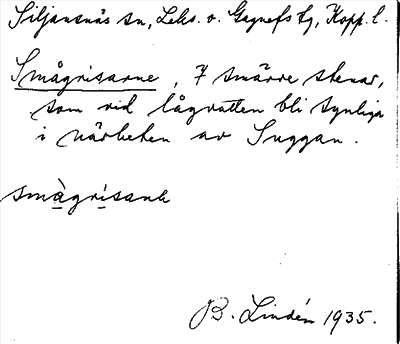 Siljansnäs sn, Leks. o. Gagnefs tg, Kopp. l.
Smågrisarne, 7 smärre stenar,
som vid lågvatten bli synliga
i närheten av Suggan.
smàgrisanɐ
B. Lindén 1935.